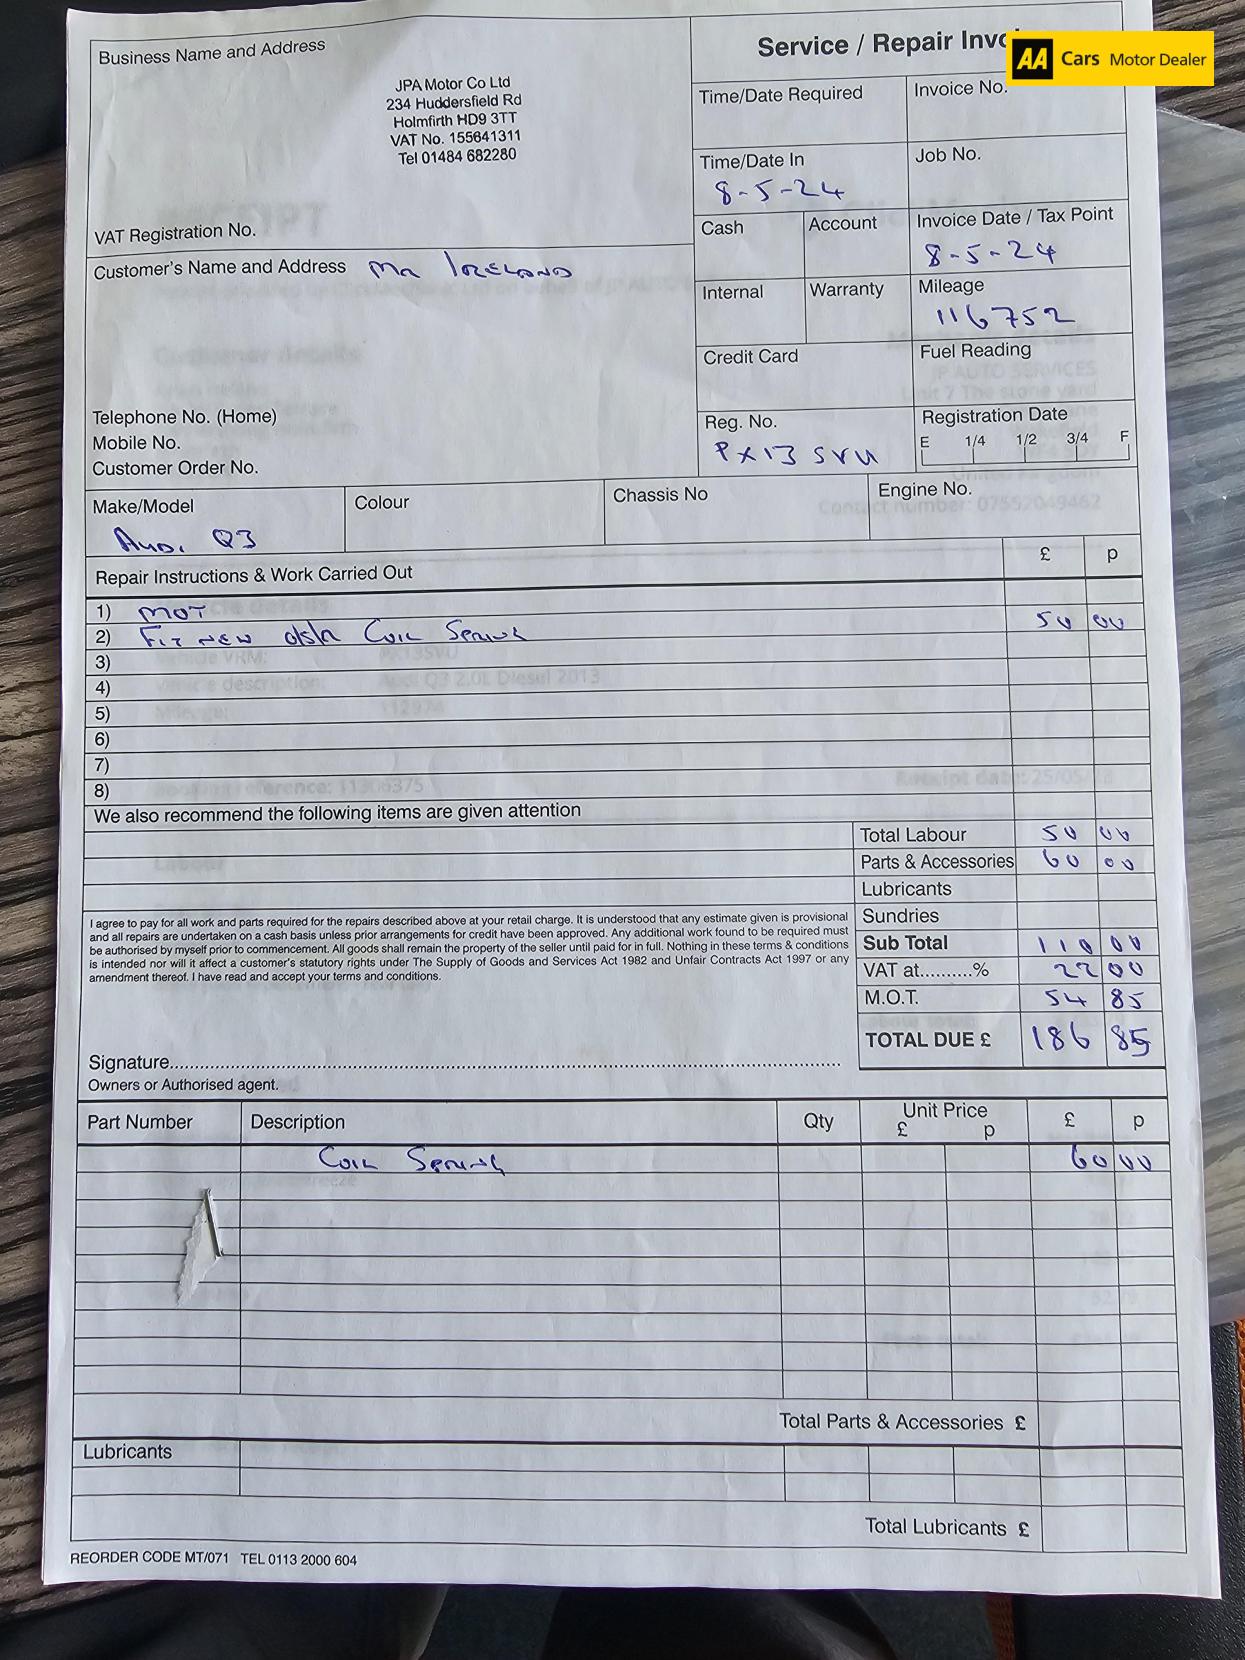 Business Name and Address
JPA Motor Co Ltd
234 Huddersfield Rd
Holmfirth HD9 3TT
VAT No. 155641311
Tel 01484 682280
VAT Registration No.
Service / Repair Invo
AA Cars Motor Dealer
Time/Date Required
Invoice No.
Time/Date In
8-5-24
Job No.
Cash
Account
Invoice Date / Tax Point
8-5-24
Internal
Warranty
Mileage
116752
Credit Card
Fuel Reading
Reg. No.
PX13 SVU
Registration Date
E 1/4 1/2 3/4 F
Customer's Name and Address Mr IRELAND
Telephone No. (Home)
Mobile No.
Customer Order No.
Make/Model
Audi Q3
Colour
Chassis No
Engine No.
Contact number: 07552049462
Repair Instructions & Work Carried Out £ p
1) MOT
2) FIT NEW o/s/r COIL SPRING 50 00
3)
Vehicle VRM: PX13SVU
4)
Vehicle description: Audi Q3 2.0L Diesel 2013
5)
6)
7)
8)
We also recommend the following items are given attention
Total Labour 50 00
Parts & Accessories 60 00
Lubricants
Sundries
Sub Total 110 00
VAT at..........% 22 00
M.O.T. 54 85
TOTAL DUE £ 186 85
I agree to pay for all work and parts required for the repairs described above at your retail charge. It is understood that any estimate given is provisional
and all repairs are undertaken on a cash basis unless prior arrangements for credit have been approved. Any additional work found to be required must
be authorised by myself prior to commencement. All goods shall remain the property of the seller until paid for in full. Nothing in these terms & conditions
is intended nor will it affect a customer's statutory rights under The Supply of Goods and Services Act 1982 and Unfair Contracts Act 1997 or any
amendment thereof. I have read and accept your terms and conditions.
Signature
Owners or Authorised agent.
Part Number Description Qty Unit Price £ p £ p
COIL SPRING 60 00
Total Parts & Accessories £
Lubricants
Total Lubricants £
REORDER CODE MT/071 TEL 0113 2000 604